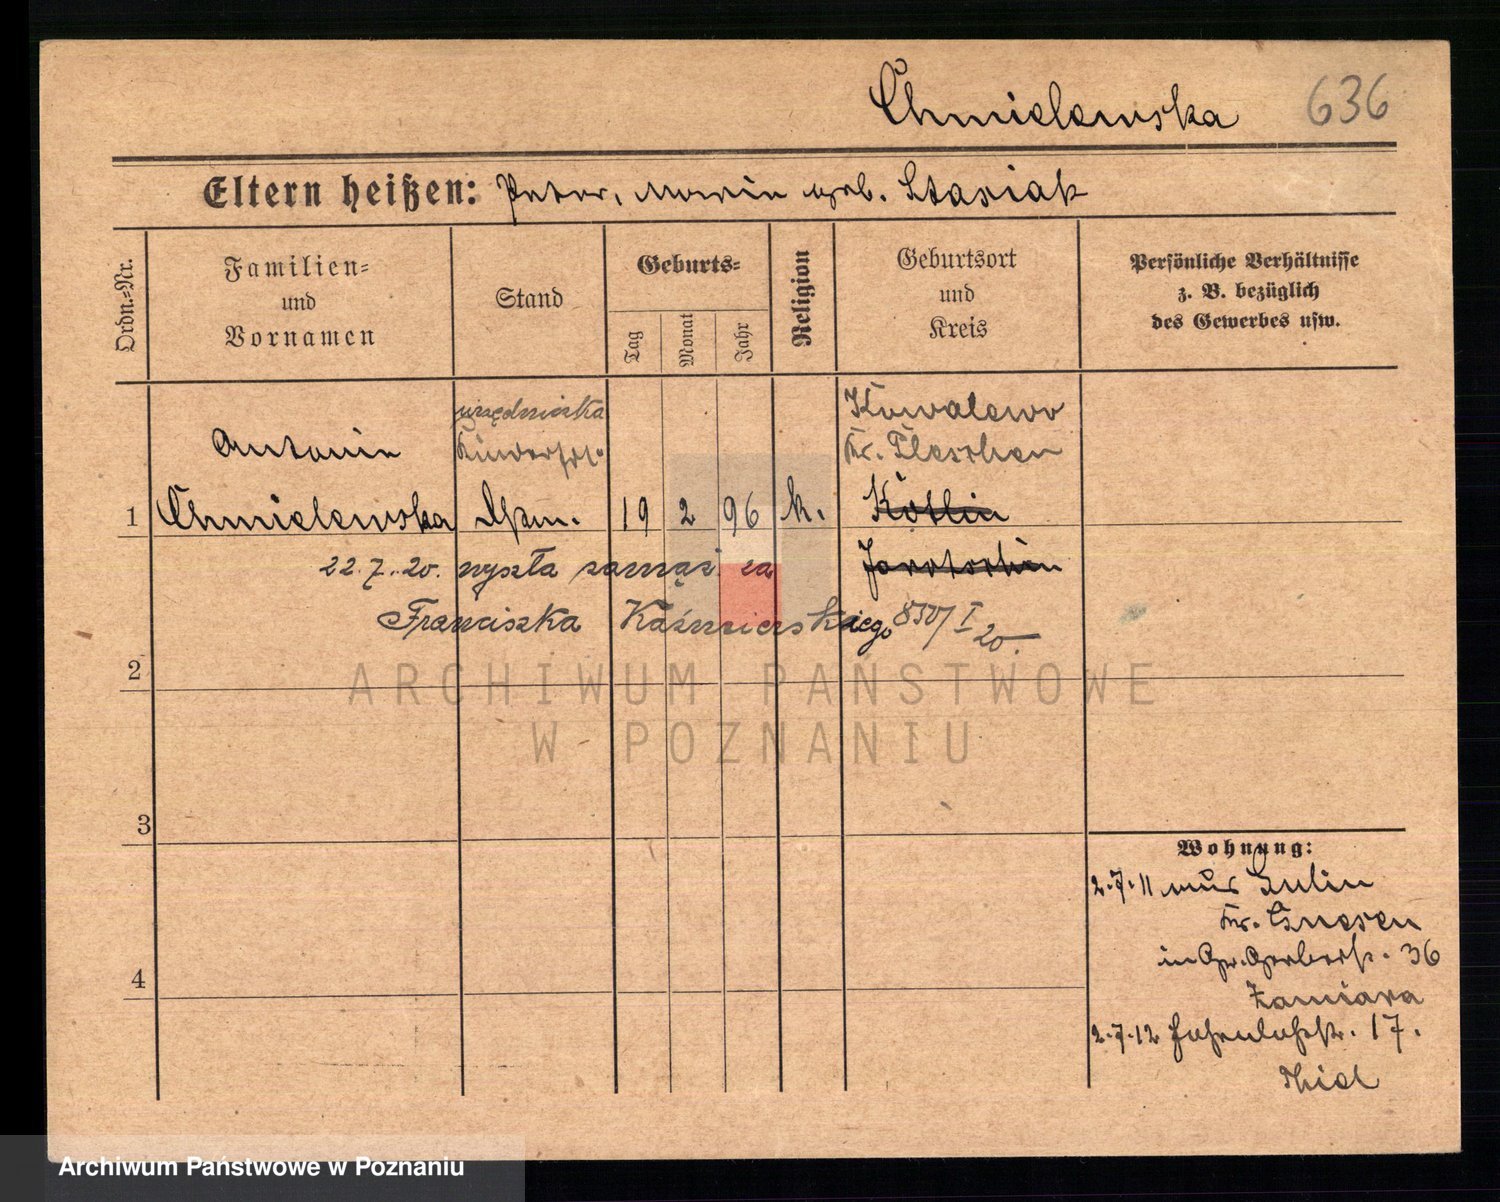 Chmielewska 636
Eltern heißen: Peter, Maria geb. Stasiak
Ordn.=Nr.
Familien=
und
Vornamen
Stand
Geburts=
Tag
Monat
Jahr
Religion
Geburtsort
und
Kreis
Persönliche Verhältnisse
z. B. bezüglich
des Gewerbes usw.
urzędniczka
Kowalewo
Antonie
Kr. Pleschen
1 Chmielewska 19 2 96 k. Kotlin
22.7.20. wyszła zamąż za Jarotschin
Franciszka Kaźmierskiego 850/I 20.
2
3
4
Wohnung:
2.7.11 aus Lulin
Kr. Gnesen
in Gr. Gerberstr. 36
2.7.12 Hohenlohestr. 17.
Thiel
ARCHIWUM PAŃSTWOWE
W POZNANIU
Archiwum Państwowe w Poznaniu